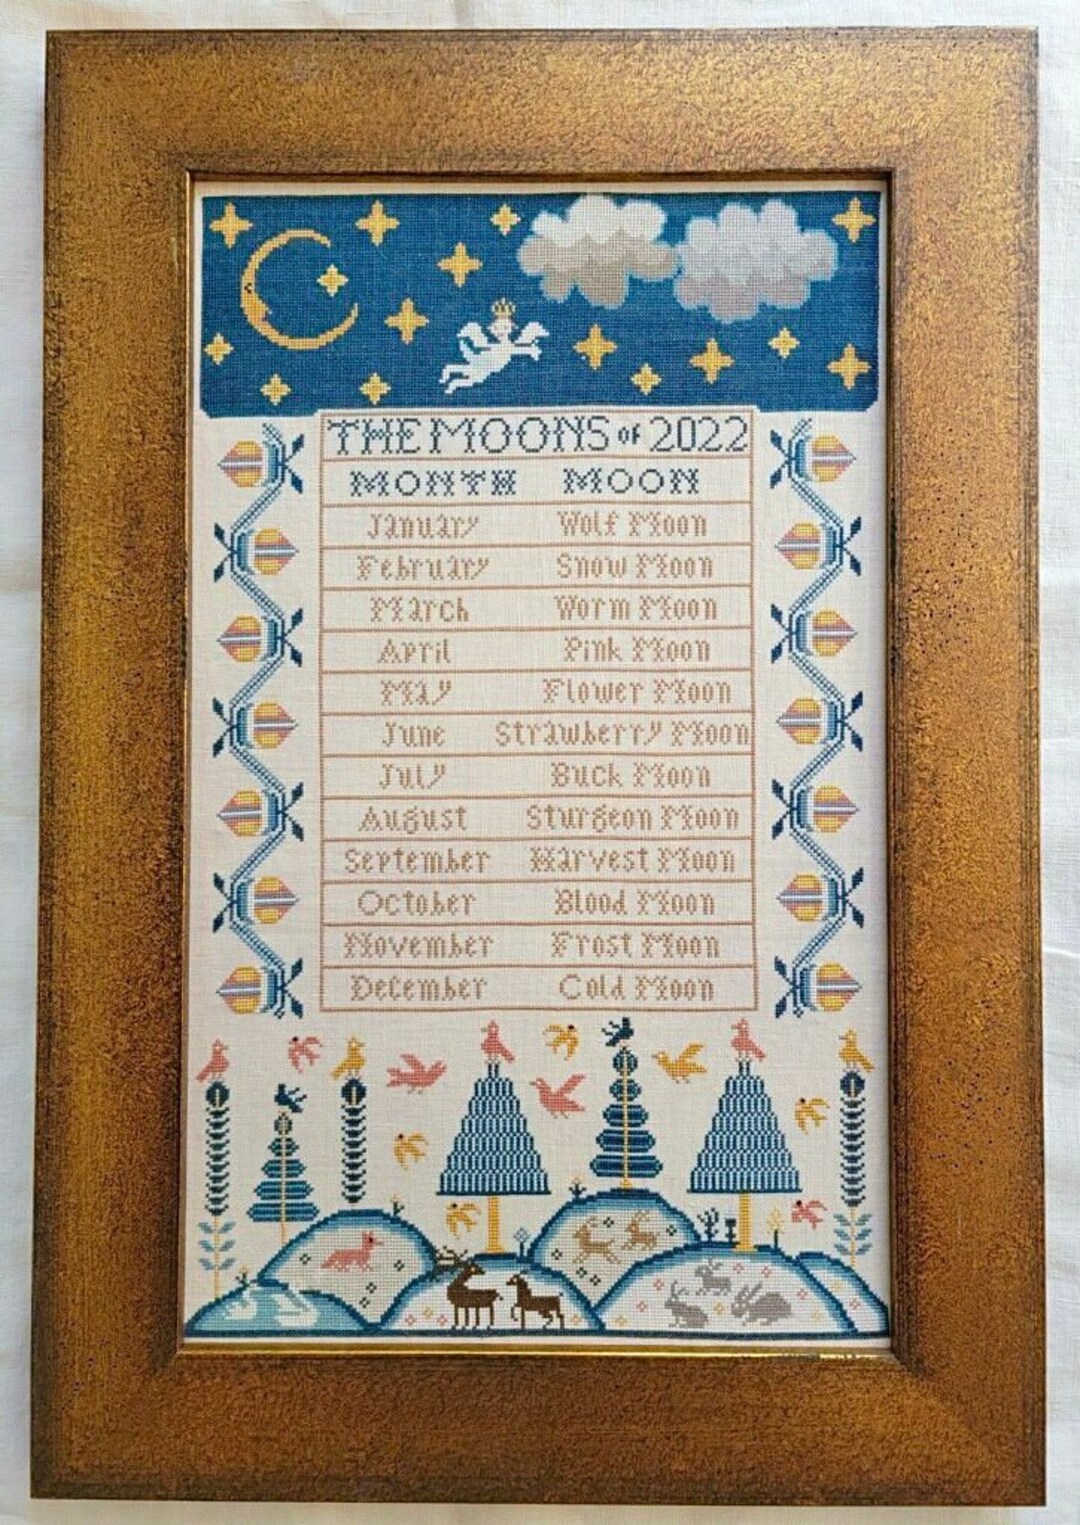 THE MOONS of 2022
MONTH MOON
January Wolf Moon
February Snow Moon
March Worm Moon
April Pink Moon
May Flower Moon
June Strawberry Moon
July Buck Moon
August Sturgeon Moon
September Harvest Moon
October Blood Moon
November Frost Moon
December Cold Moon